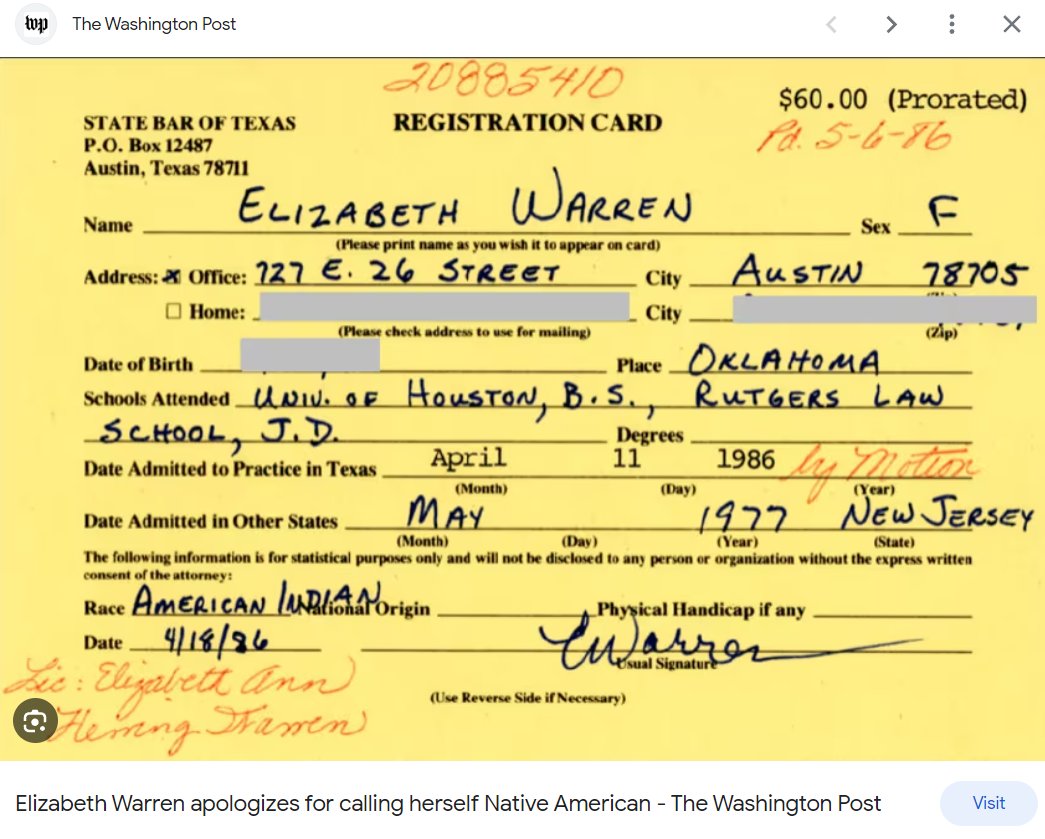 wp The Washington Post
20885410
$60.00 (Prorated)
STATE BAR OF TEXAS REGISTRATION CARD
Pd. 5-6-86
P.O. Box 12487
Austin, Texas 78711
Name ELIZABETH WARREN Sex F
(Please print name as you wish it to appear on card)
Address: Office: 727 E. 26 STREET City AUSTIN 78705
Home: City
(Please check address to use for mailing) (Zip)
Date of Birth Place OKLAHOMA
Schools Attended UNIV. OF HOUSTON, B.S., RUTGERS LAW
SCHOOL, J.D. Degrees
Date Admitted to Practice in Texas April 11 1986 by Motion
(Month) (Day) (Year)
Date Admitted in Other States MAY 1977 NEW JERSEY
(Month) (Day) (Year) (State)
The following information is for statistical purposes only and will not be disclosed to any person or organization without the express written
consent of the attorney:
Race AMERICAN INDIAN National Origin Physical Handicap if any
Date 4/18/86 EWarren
Usual Signature
Lic: Elizabeth Ann
(Use Reverse Side if Necessary)
Herring Warren
Elizabeth Warren apologizes for calling herself Native American - The Washington Post Visit